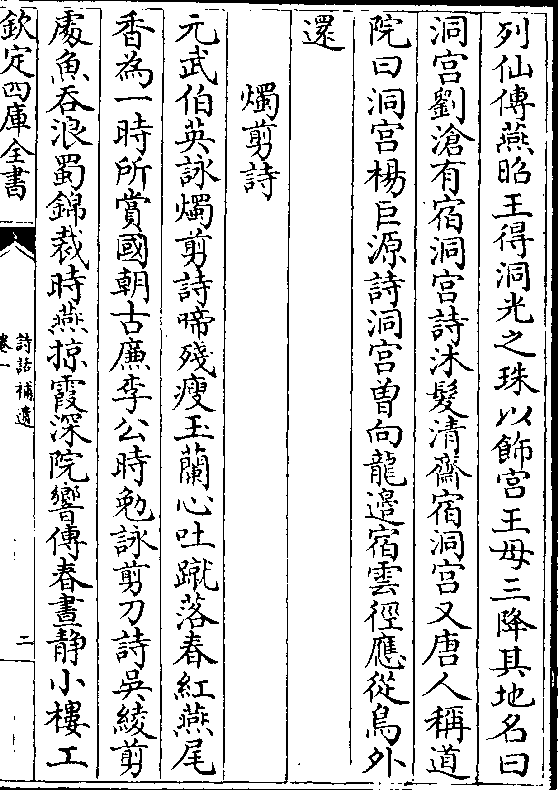 列仙傳燕昭王得洞光之珠以飾宫王母三降其地名曰
洞宫劉滄有宿洞宫詩沐髮清齋宿洞宫又唐人稱道
院曰洞宫楊巨源詩洞宫曽向龍邉宿雲徑應從鳥外
還
燭剪詩
元武伯英詠燭剪詩啼殘瘦玉蘭心吐蹴落春紅燕尾
香為一時所賞國朝古廉李公時勉詠剪刀詩吳綾剪
處魚吞浪蜀錦裁時燕掠霞深院響傳春晝静小樓工
欽定四庫全書
詩話補遺
卷一
二